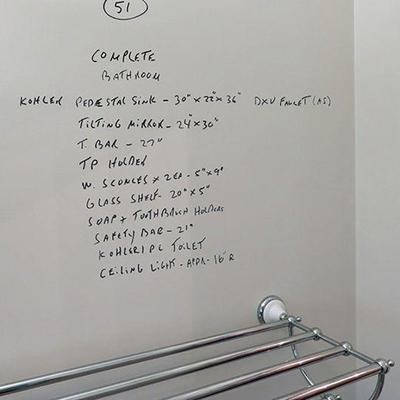 51
COMPLETE
BATHROOM
KOHLER PEDESTAL SINK - 30" x 22" x 36" DXV FAUCET (AS)
TILTING MIRROR - 24" x 30"
T. BAR - 27"
TP HOLDER
W. SCONCES x 2EA - 5" x 9"
GLASS SHELF - 20" x 5"
SOAP + TOOTHBRUSH HOLDERS
SAFETY BAR - 21"
KOHLER 1 PC TOILET
CEILING LIGHT - APPR - 16"R